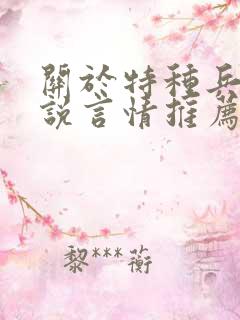 關於特種兵
說言情推薦
黎***蘅